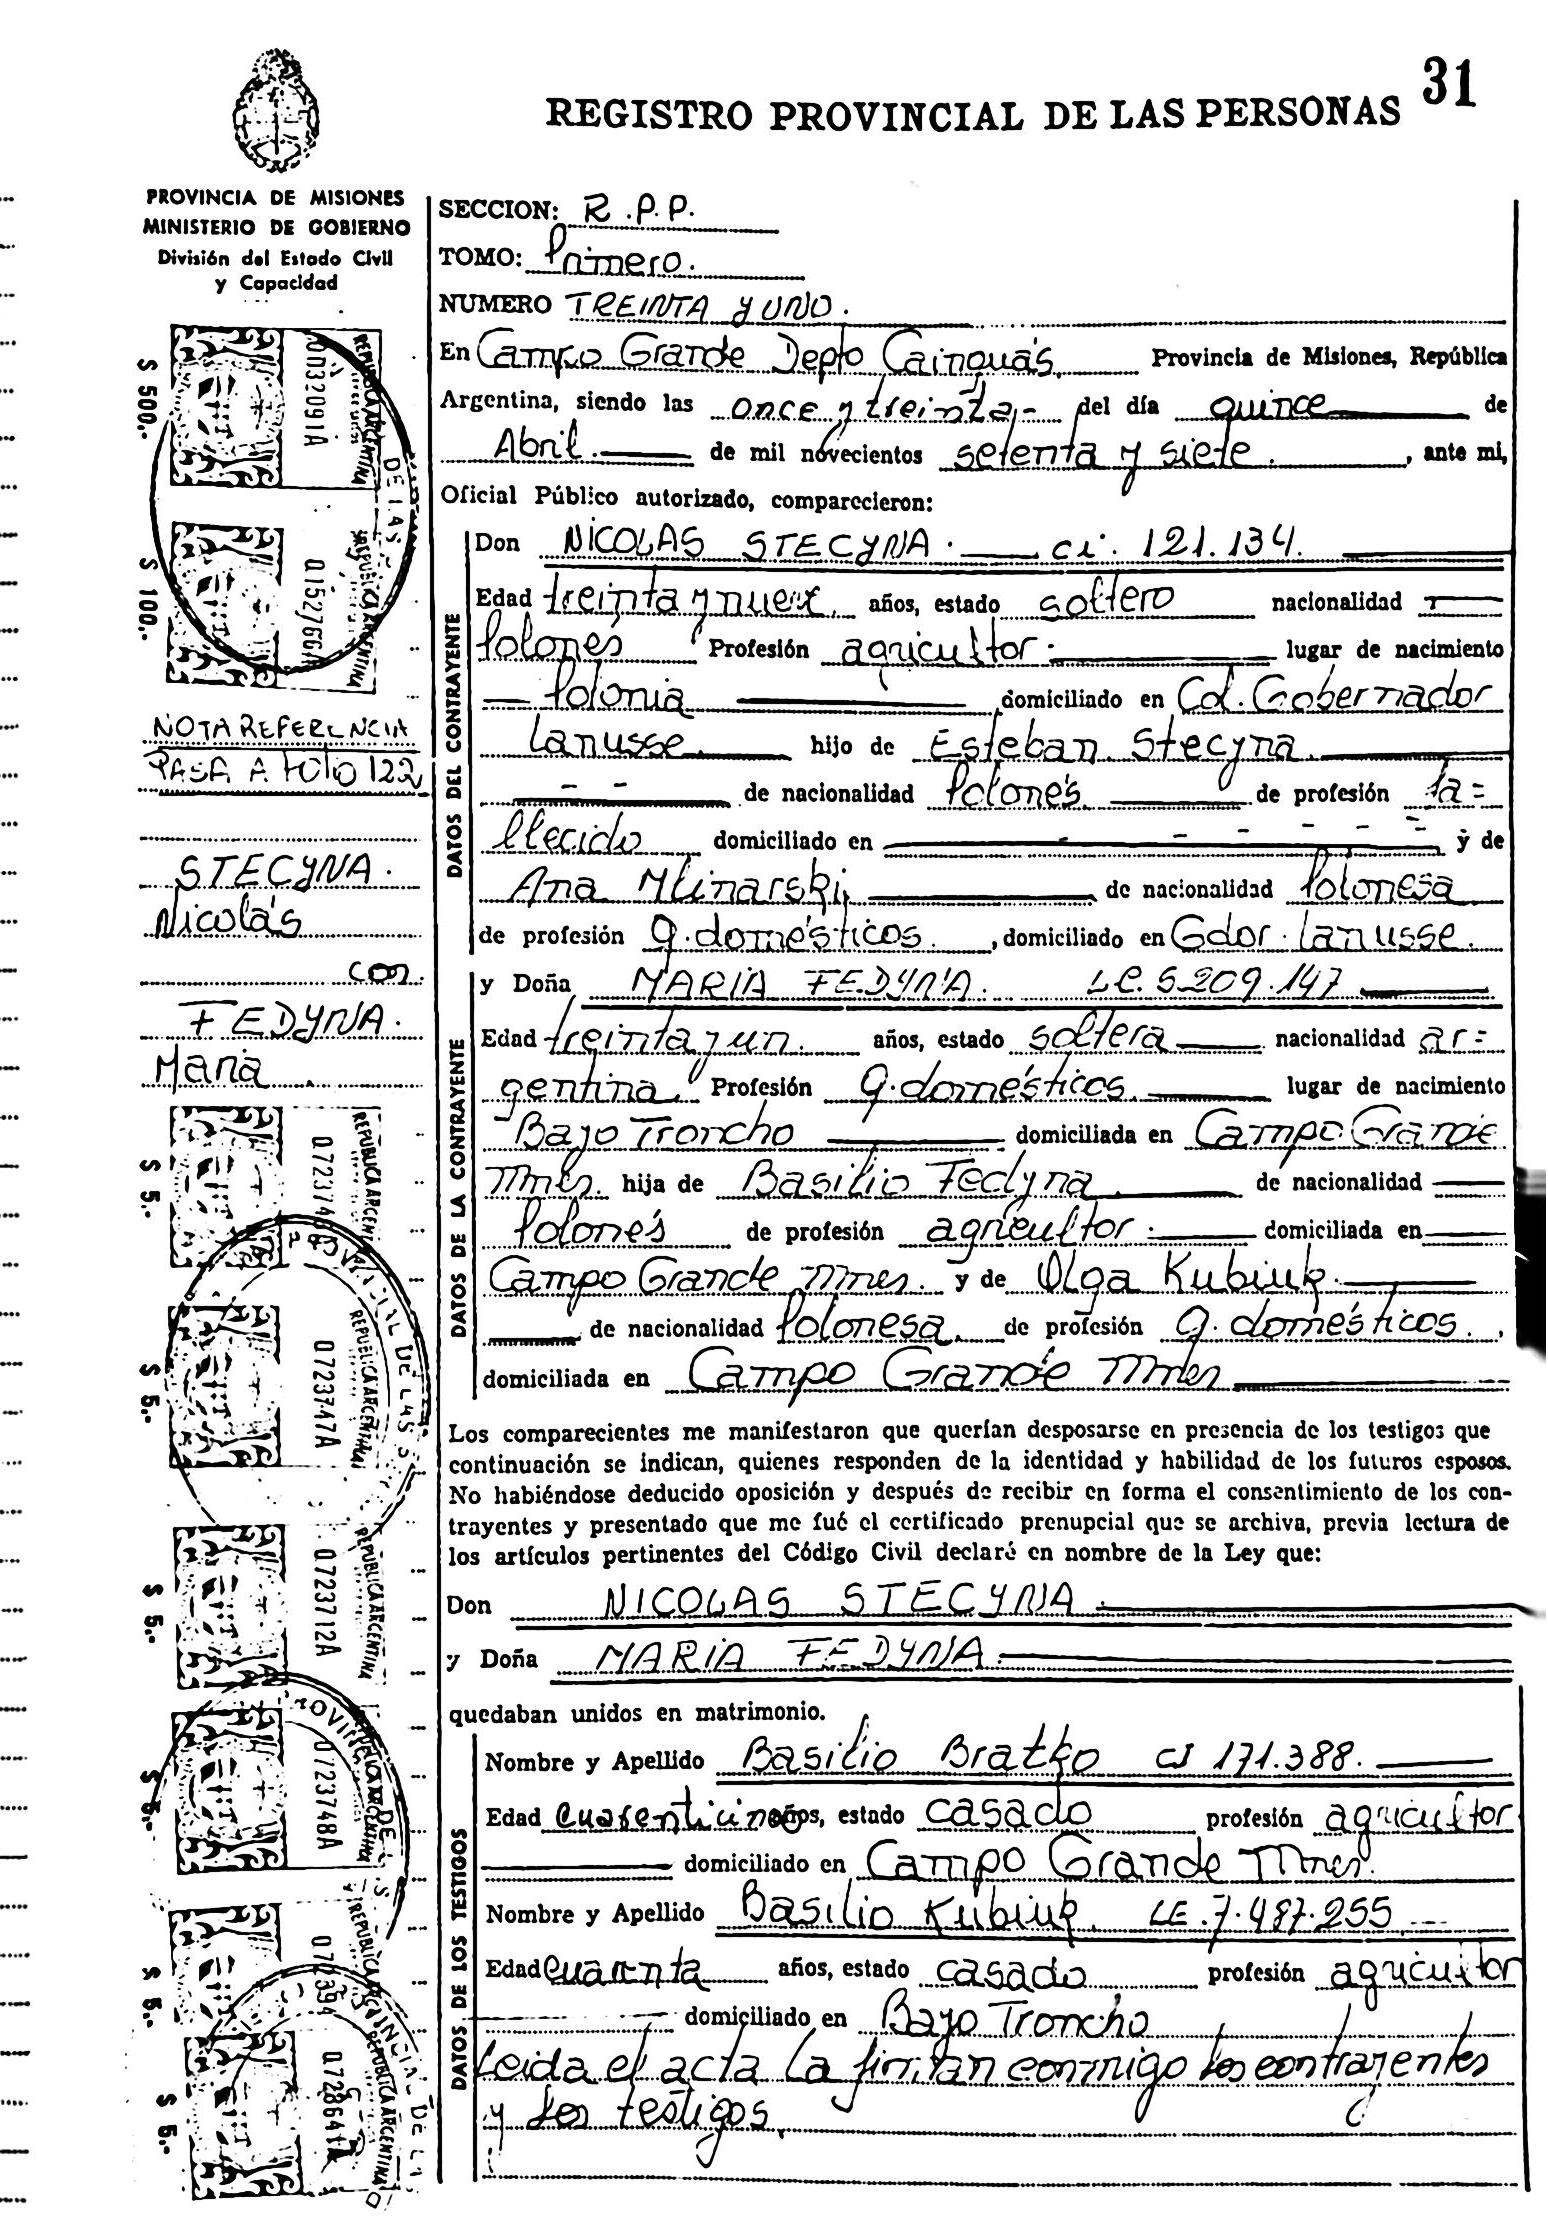 31
REGISTRO PROVINCIAL DE LAS PERSONAS
PROVINCIA DE MISIONES
MINISTERIO DE GOBIERNO
División del Estado Civil
y Capacidad
$ 500.-
0032091A
REPUBLICA ARGENTINA
$ 100.-
0152766A
REPUBLICA ARGENTINA
DE LAS
NOTA REFERENCIA
PASA A FOLIO 122
STECYNA.
Nicolás
con.
FEDYNA.
Maria
$ 5.-
REPUBLICA ARGENTINA
$ 5.-
0723747A
REPUBLICA ARGENTINA
$ 5.-
0723712A
REPUBLICA ARGENTINA
$ 5.-
0723748A
$ 5.-
REPUBLICA ARGENTINA
$ 5.-
REPUBLICA ARGENTINA
SECCION: R.P.P.
TOMO: Primero.
NUMERO TREINTA Y UNO.
En Campo Grande Depto Cainguás, Provincia de Misiones, República
Argentina, siendo las once y treinta,- del día quince de
Abril. de mil novecientos setenta y siete. , ante mi,
Oficial Público autorizado, comparecieron:
DATOS DEL CONTRAYENTE
Don NICOLAS STECYNA. ci. 121.134.
Edad treinta y nueve años, estado soltero nacionalidad
Polonés Profesión agricultor. lugar de nacimiento
Polonia domiciliado en Col. Gobernador
Lanusse. hijo de Esteban Stecyna.
de nacionalidad Polonés de profesión fa=
llecido domiciliado en - - - - - - y de
Ana Mlinarski, de nacionalidad Polonesa
de profesión q. domésticos. , domiciliado en Gdor. Lanusse.
DATOS DE LA CONTRAYENTE
y Doña MARIA FEDYNA. LC. 5.209.147
Edad treinta y un. años, estado soltera nacionalidad ar=
gentina. Profesión q. domésticos. lugar de nacimiento
Bajo Troncho domiciliada en Campo Grande
Mnes. hija de Basilio Fedyna de nacionalidad
Polonés de profesión agricultor. domiciliada en
Campo Grande Mnes. y de Olga Kubiuk.
de nacionalidad Polonesa, de profesión q. domésticos. ,
domiciliada en Campo Grande Mnes
Los comparecientes me manifestaron que querían desposarse en presencia de los testigos que
continuación se indican, quienes responden de la identidad y habilidad de los futuros esposos.
No habiéndose deducido oposición y después de recibir en forma el consentimiento de los con-
trayentes y presentado que me fué el certificado prenupcial que se archiva, previa lectura de
los artículos pertinentes del Código Civil declaré en nombre de la Ley que:
Don NICOLAS STECYNA.
y Doña MARIA FEDYNA.
quedaban unidos en matrimonio.
DATOS DE LOS TESTIGOS
Nombre y Apellido Basilio Bratko CI 171.388.
Edad cuarenticinco años, estado casado profesión agricultor
domiciliado en Campo Grande Mnes.
Nombre y Apellido Basilio Kubiuk. LE. 7.487.255
Edad cuarenta años, estado casado profesión agricultor
domiciliado en Bajo Troncho
Leida el acta la firman conmigo los contrayentes
y los testigos.